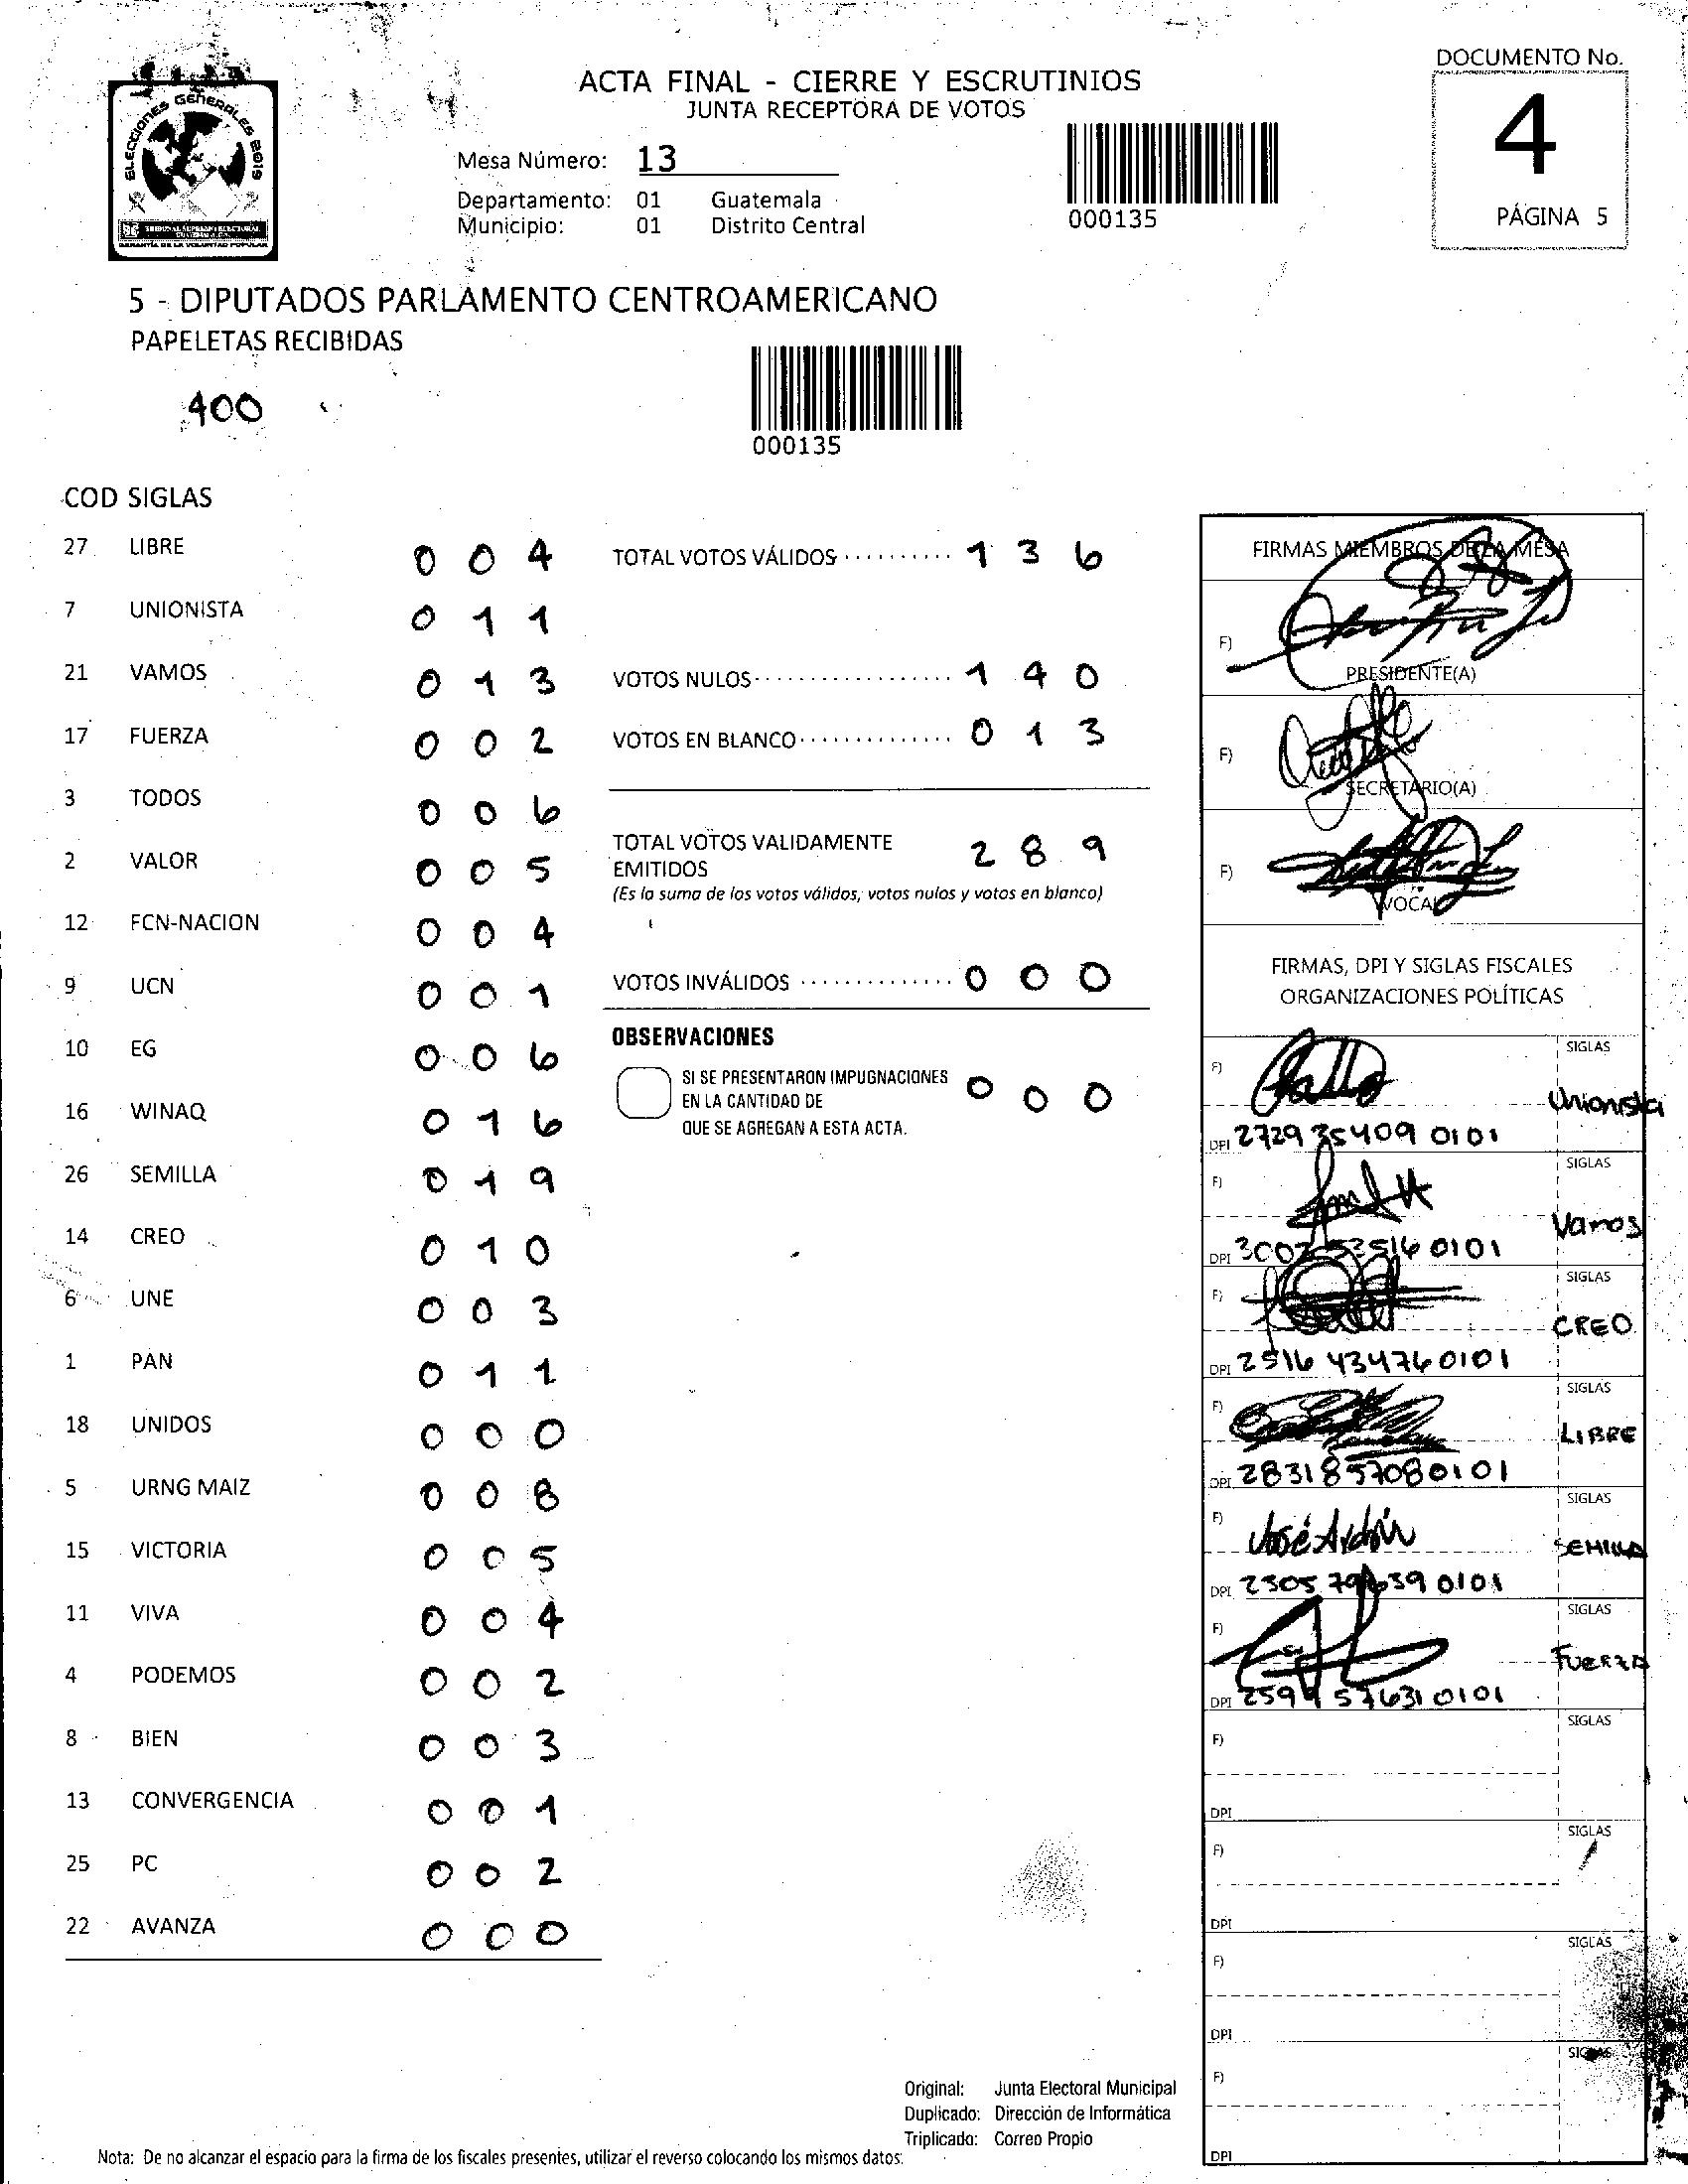 DOCUMENTO No.
4
PÁGINA 5
ELECCIONES GENERALES 2019
TRIBUNAL SUPREMO ELECTORAL
GARANTÍA DE LA VOLUNTAD POPULAR
ACTA FINAL - CIERRE Y ESCRUTINIOS
JUNTA RECEPTORA DE VOTOS
Mesa Número: 13
Departamento: 01 Guatemala
Municipio: 01 Distrito Central
000135
5 - DIPUTADOS PARLAMENTO CENTROAMERICANO
PAPELETAS RECIBIDAS
400
000135
COD SIGLAS
27 LIBRE 0 0 4
7 UNIONISTA 0 1 1
21 VAMOS 0 1 3
17 FUERZA 0 0 2
3 TODOS 0 0 6
2 VALOR 0 0 5
12 FCN-NACION 0 0 4
9 UCN 0 0 1
10 EG 0 0 6
16 WINAQ 0 1 6
26 SEMILLA 0 1 9
14 CREO 0 1 0
6 UNE 0 0 3
1 PAN 0 1 1
18 UNIDOS 0 0 0
5 URNG MAIZ 0 0 8
15 VICTORIA 0 0 5
11 VIVA 0 0 4
4 PODEMOS 0 0 2
8 BIEN 0 0 3
13 CONVERGENCIA 0 0 1
25 PC 0 0 2
22 AVANZA 0 0 0
TOTAL VOTOS VÁLIDOS .......... 1 3 6
VOTOS NULOS ................. 1 4 0
VOTOS EN BLANCO .............. 0 1 3
TOTAL VOTOS VALIDAMENTE
EMITIDOS 2 8 9
(Es la suma de los votos válidos, votos nulos y votos en blanco)
VOTOS INVÁLIDOS .............. 0 0 0
OBSERVACIONES
SI SE PRESENTARON IMPUGNACIONES
EN LA CANTIDAD DE 0 0 0
QUE SE AGREGAN A ESTA ACTA.
FIRMAS MIEMBROS DE LA MESA
F)
PRESIDENTE(A)
F)
SECRETARIO(A)
F)
VOCAL
FIRMAS, DPI Y SIGLAS FISCALES
ORGANIZACIONES POLÍTICAS
SIGLAS
F)
Unionista
DPI 2729 35409 0101
SIGLAS
F)
Vamos
DPI 0101
SIGLAS
F)
CREO
DPI 2516 43476 0101
SIGLAS
F)
LIBRE
DPI 2831 85708 0101
SIGLAS
F) José Ardón
SEMILLA
DPI 2305 0101
SIGLAS
F)
FUERZA
DPI 57631 0101
SIGLAS
F)
DPI
SIGLAS
F)
DPI
SIGLAS
F)
DPI
SIGLAS
F)
DPI
Original: Junta Electoral Municipal
Duplicado: Dirección de Informática
Triplicado: Correo Propio
Nota: De no alcanzar el espacio para la firma de los fiscales presentes, utilizar el reverso colocando los mismos datos.